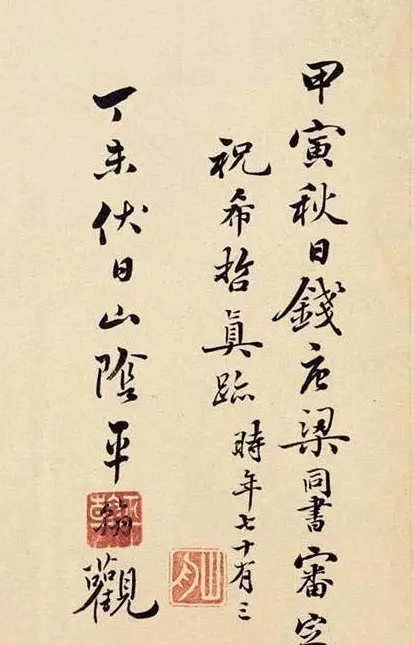 甲寅秋日錢唐梁同書審定
祝希哲真跡時年七十有三
丁未伏日山陰平翰觀